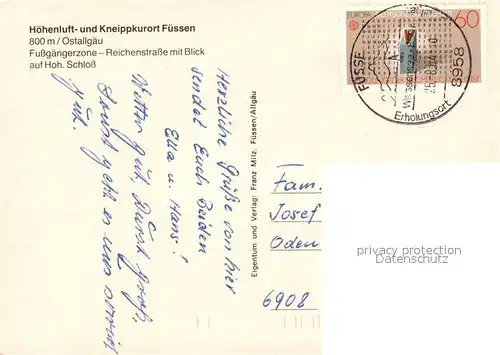 Höhenluft- und Kneippkurort Füssen
800 m / Ostallgäu
Fußgängerzone – Reichenstraße mit Blick
auf Hoh. Schloß
EUROPA
60
8958
Erholungsort
Herzliche Grüße von hier
sendet Euch Beiden
Ella u. Hans!
Wetter gut Durst groß.
Sonst geht es uns soweit
gut.
Eigentum und Verlag: Franz Milz, Füssen/Allgäu
Fam.
Josef
Oden
6908
privacy protection
Datenschutz